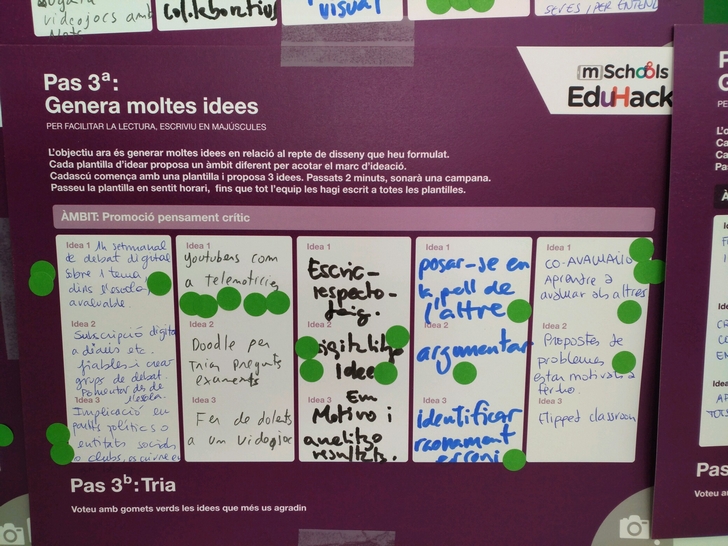 videojocs amb
Nota
col·laboratius
visual
SEVES I PER ENTEND
mSchools
EduHack
Pas 3ª:
Genera moltes idees
PER FACILITAR LA LECTURA, ESCRIVIU EN MAJÚSCULES
L'objectiu ara és generar moltes idees en relació al repte de disseny que heu formulat.
Cada plantilla d'idear proposa un àmbit diferent per acotar el marc d'ideació.
Cadascú comença amb una plantilla i proposa 3 idees. Passats 2 minuts, sonarà una campana.
Passeu la plantilla en sentit horari, fins que tot l'equip les hagi escrit a totes les plantilles.
ÀMBIT: Promoció pensament crític
Idea 1
1h setmanal
de debat digital
sobre 1 tema
dins l'escola,
avaluable.
Idea 2
Subscripció digital
a diaris etc.
fiables i crear
grups de debat.
l'escola.
Idea 3
Implicació en
polítics o
entitats socials
o clubs, escriure en
Idea 1
Youtubers com
a telenotícies
Idea 2
Doodle per
triar preguntes
exàmens
Idea 3
Fer de dolents
a un videojoc
Idea 1
Escric-
respecto-
faig.
Idea 2
idees
Idea 3
Em
Motivo i
analitzo
resultats.
Idea 1
posar-se en
la pell de
l'altre
Idea 2
argumentar
Idea 3
identificar
raonament
erroni
Idea 1
CO-AVALUACIÓ
Aprendre a
avaluar als altres
Idea 2
Propostes de
problemes
estar motivats a
fer-ho.
Idea 3
Flipped classroom
Pas 3ᵇ: Tria
Voteu amb gomets verds les idees que més us agradin